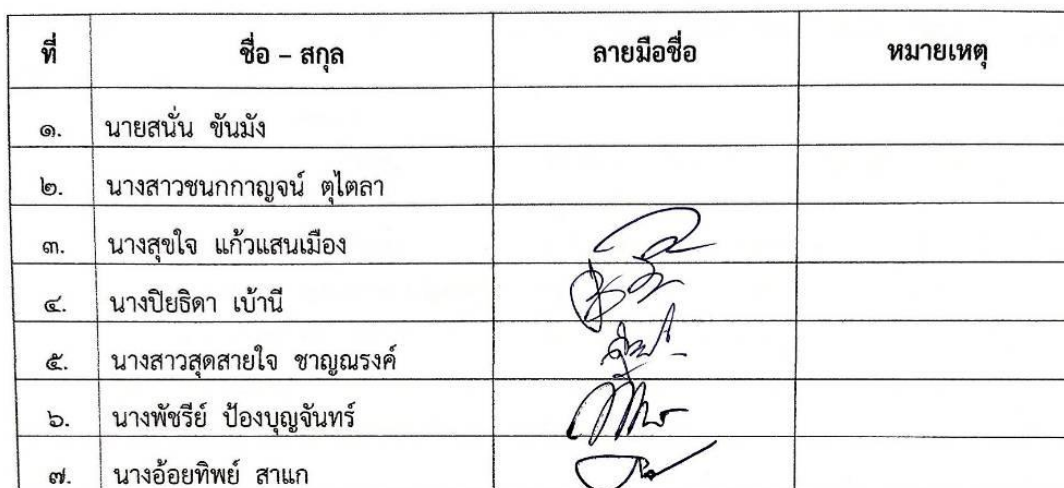 ที่ ชื่อ – สกุล ลายมือชื่อ หมายเหตุ
๑. นายสนั่น ขันมัง
๒. นางสาวชนกกาญจน์ ตุไตลา
๓. นางสุขใจ แก้วแสนเมือง
๔. นางปิยธิดา เบ้านี
๕. นางสาวสุดสายใจ ชาญณรงค์
๖. นางพัชรีย์ ป้องบุญจันทร์
๗. นางอ้อยทิพย์ สาแก